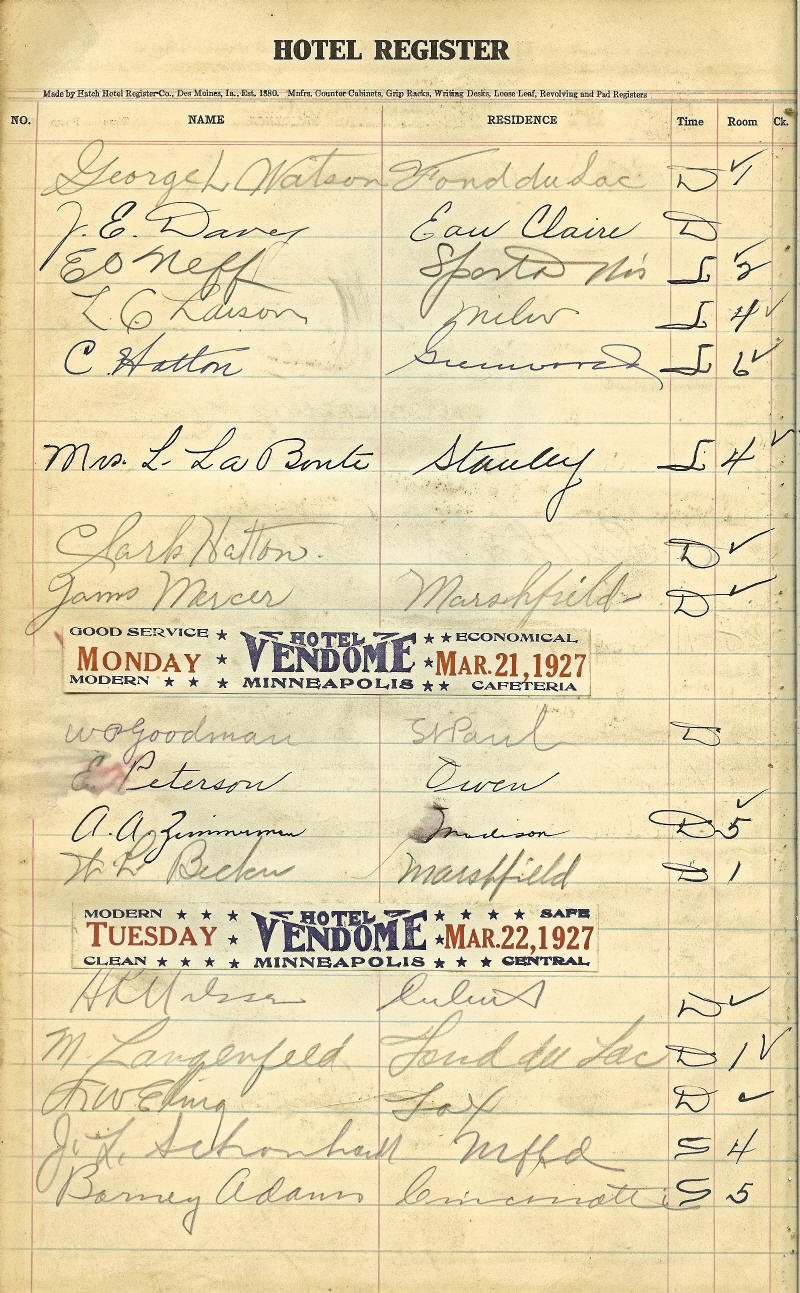 HOTEL REGISTER
Made by Hatch Hotel Register Co., Des Moines, Ia., Est. 1880. Mnfrs. Counter Cabinets, Grip Racks, Writing Desks, Loose Leaf, Revolving and Pad Registers
NO. NAME RESIDENCE Time Room Ck.
George L Watson Fond du Lac D ✓ 1
J. E. Davey Eau Claire D
Ed Neff Sparta Wis L 2 ✓
L. C Larson Milw L 4 ✓
C. Hatton Greenwood L 6 ✓
Mrs. L. La Bonte Stanley L 4 ✓
Clark Hatton. D ✓
James Mercer Marshfield D ✓
GOOD SERVICE ★ HOTEL ★ ★ ECONOMICAL
MONDAY ★ VENDOME ★ MAR. 21, 1927
MODERN ★ ★ ★ MINNEAPOLIS ★ ★ CAFETERIA
W P Goodman St Paul D
E. Peterson Owen
A. A. Zimmerman Madison D 5 ✓
Becker Marshfield D 1
MODERN ★ ★ ★ HOTEL ★ ★ ★ ★ SAFE
TUESDAY ★ VENDOME ★ MAR. 22, 1927
CLEAN ★ ★ ★ MINNEAPOLIS ★ ★ ★ CENTRAL
D ✓
M. Langenfeld Fond du Lac D 1 ✓
D ✓
J. L. Schonhardt Mffd S 4
Barney Adams Cincinnatti S 5